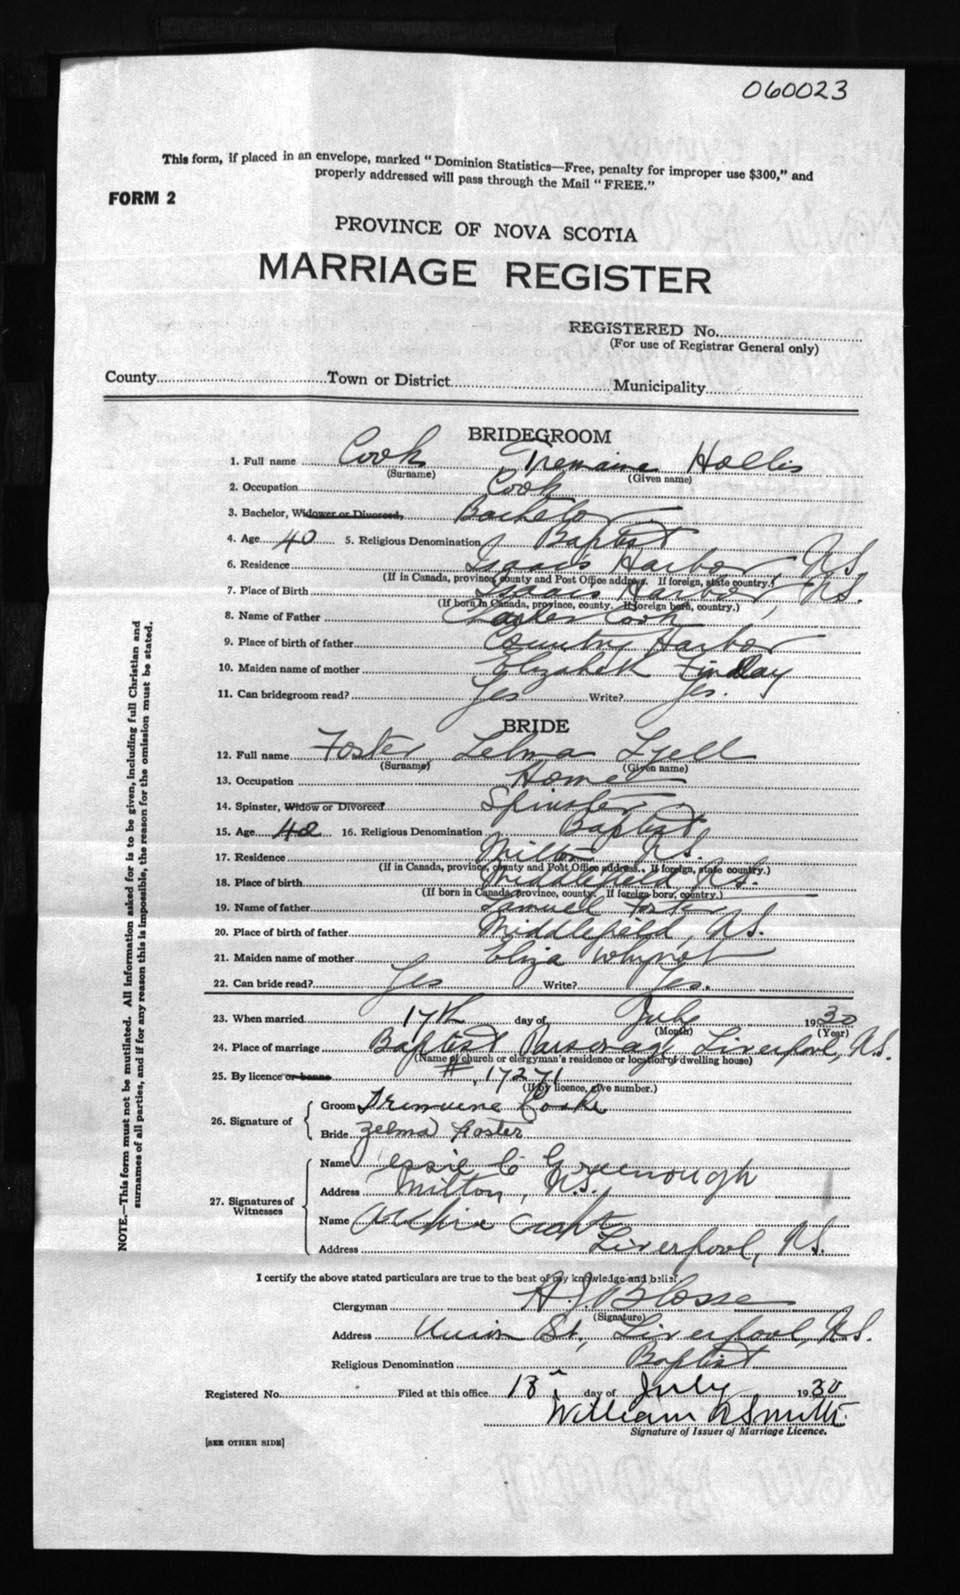 060023
This form, if placed in an envelope, marked "Dominion Statistics—Free, penalty for improper use $300," and
properly addressed will pass through the Mail "FREE."
FORM 2
PROVINCE OF NOVA SCOTIA
MARRIAGE REGISTER
REGISTERED No.
(For use of Registrar General only)
County Town or District Municipality
BRIDEGROOM
1. Full name Cook Tremaine Hollis
(Surname) (Given name)
2. Occupation Cook
3. Bachelor, Widower or Divorced, Bachelor
4. Age 40 5. Religious Denomination Baptist
6. Residence Isaacs Harbor, N.S.
(If in Canada, province, county and Post Office address. If foreign, state country.)
7. Place of Birth Isaacs Harbor, N.S.
(If born in Canada, province, county. If foreign born, country.)
8. Name of Father Cook
9. Place of birth of father Country Harbor
10. Maiden name of mother Elizabeth Findlay
11. Can bridegroom read? Yes Write? Yes.
BRIDE
12. Full name Foster Zelma
(Surname) (Given name)
13. Occupation Home
14. Spinster, Widow or Divorced Spinster
15. Age 42 16. Religious Denomination Baptist
17. Residence Milton N.S.
(If in Canada, province, county and Post Office address. If foreign, state country.)
18. Place of birth Middlefield, N.S.
(If born in Canada, province, county. If foreign born, country.)
19. Name of father Samuel Foster
20. Place of birth of father Middlefield, N.S.
21. Maiden name of mother Eliza
22. Can bride read? Yes Write? Yes.
23. When married 17th day of July 1930
(Month) (Year)
24. Place of marriage Baptist Parsonage Liverpool, N.S.
(Name of church or clergyman's residence or location of dwelling house)
25. By licence or banns # 17271
(If by licence, give number.)
26. Signature of Groom Tremaine Cook
Bride Zelma Foster
27. Signatures of Witnesses Name Jessie C Greenough
Address Milton, N.S.
Name Archie
Address Liverpool, N.S.
I certify the above stated particulars are true to the best of my knowledge and belief.
Clergyman H. J. Blosse
(Signature)
Address Union St., Liverpool, N.S.
Religious Denomination Baptist
Registered No. Filed at this office 18 day of July 1930
William A Smith
Signature of Issuer of Marriage Licence.
[SEE OTHER SIDE]
NOTE.—This form must not be mutilated. All information asked for is to be given, including full Christian and
surnames of all parties, and if for any reason this is impossible, the reason for the omission must be stated.